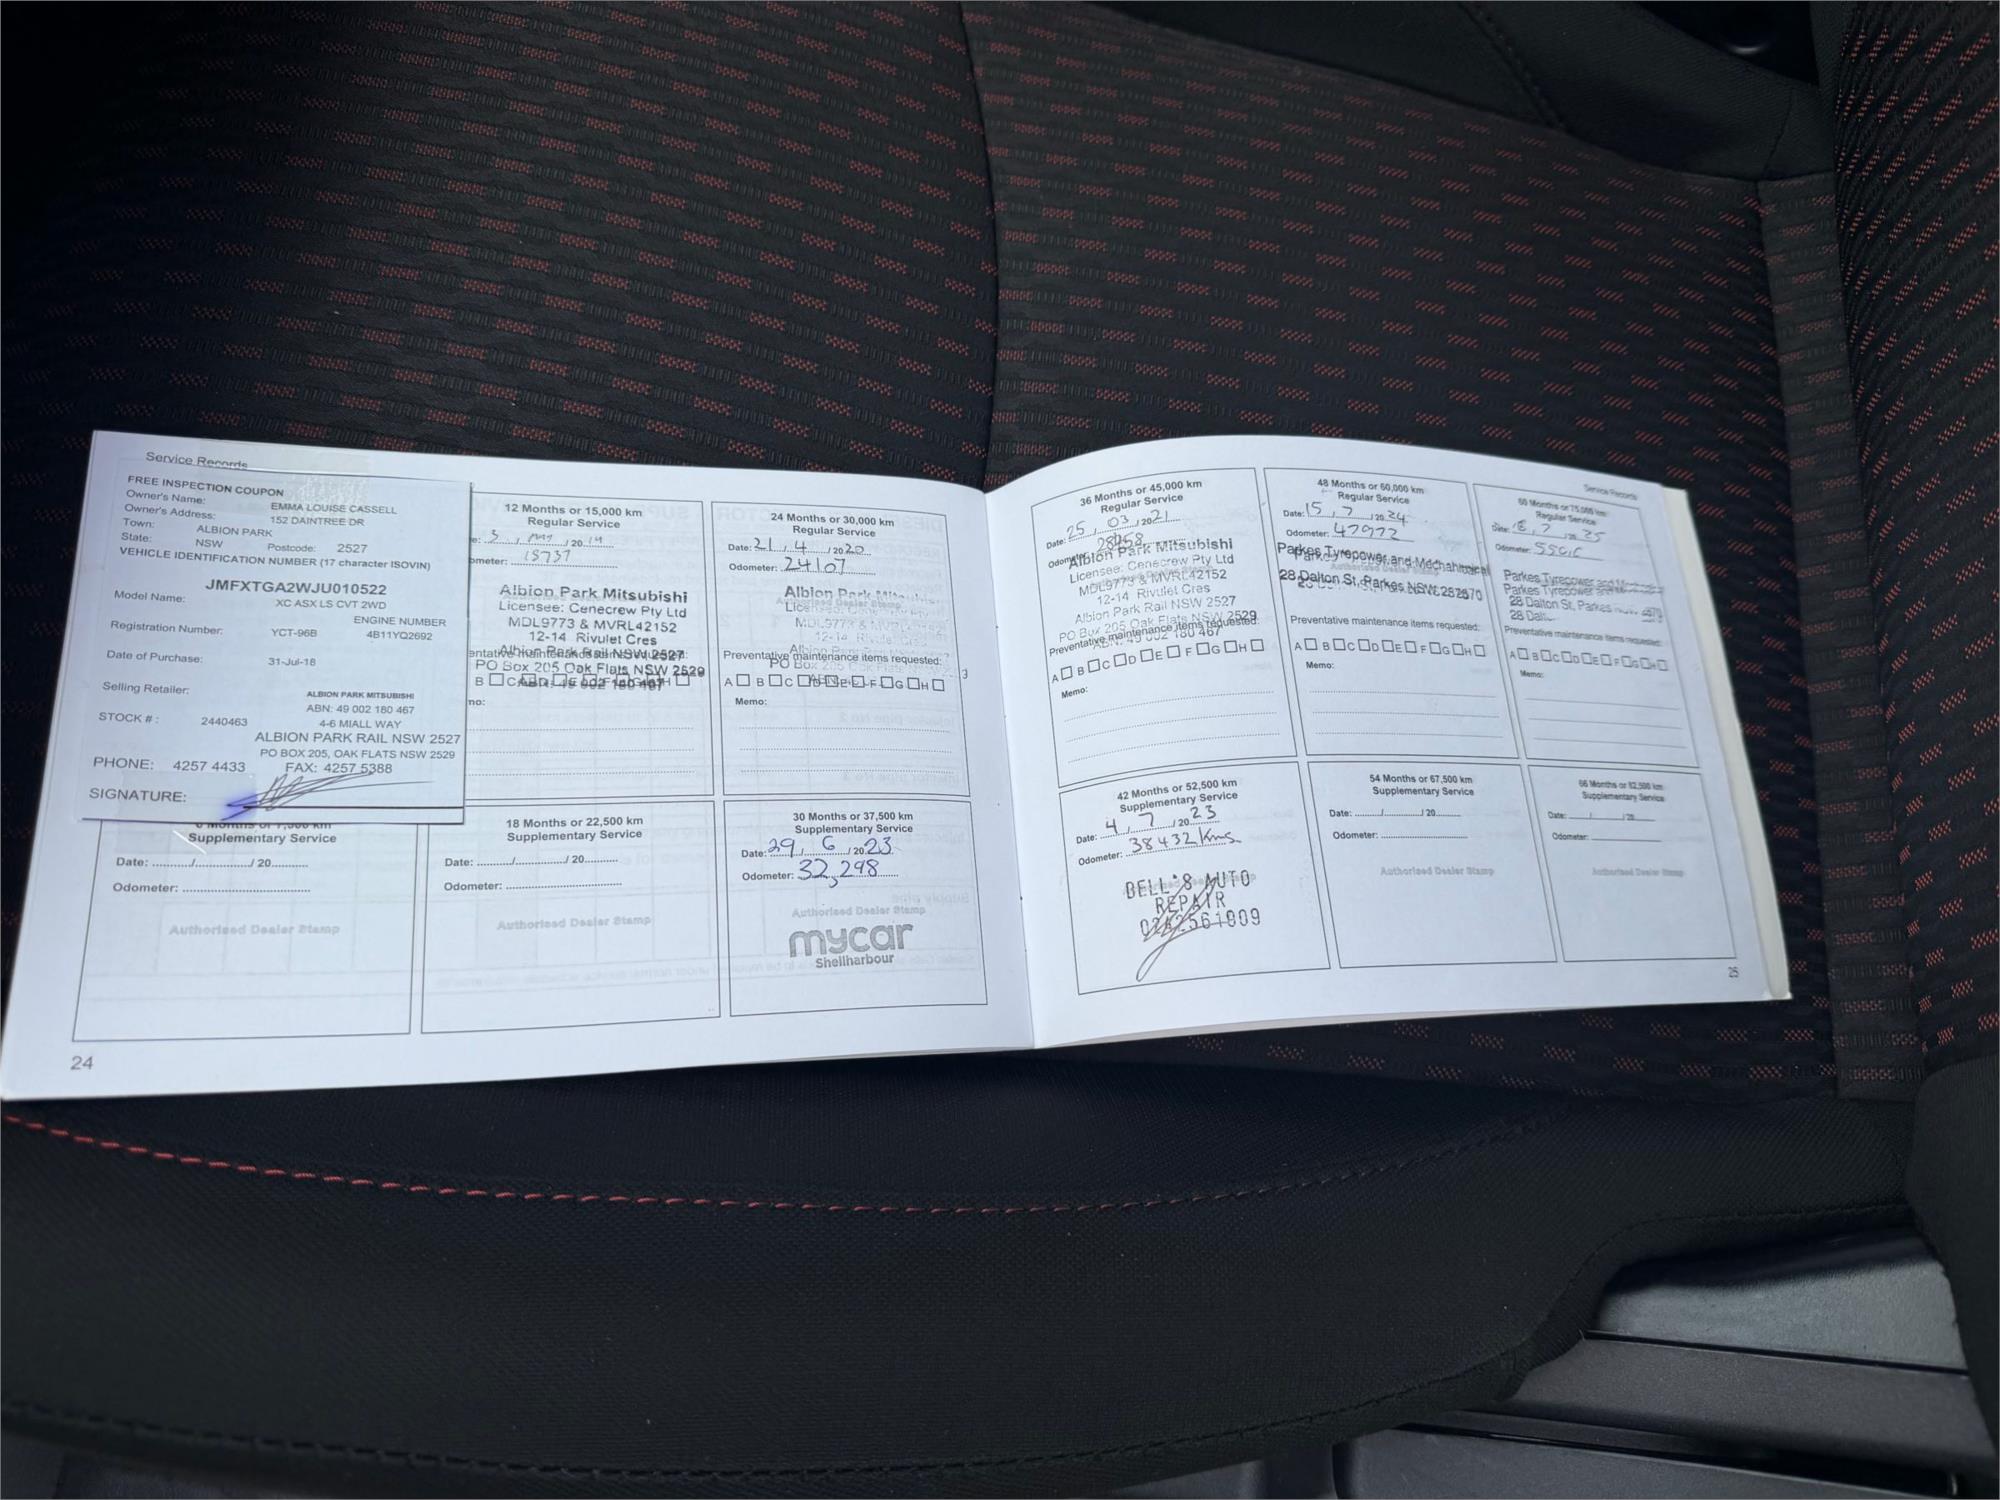 Service Records
FREE INSPECTION COUPON
Owner's Name: EMMA LOUISE CASSELL
Owner's Address: 152 DAINTREE DR
Town: ALBION PARK
State: NSW Postcode: 2527
VEHICLE IDENTIFICATION NUMBER (17 character ISOVIN)
JMFXTGA2WJU010522
Model Name: XC ASX LS CVT 2WD
ENGINE NUMBER
Registration Number: YCT-96B 4B11YQ2692
Date of Purchase: 31-Jul-18
Selling Retailer: ALBION PARK MITSUBISHI
ABN: 49 002 180 467
STOCK # : 2440463 4-6 MIALL WAY
ALBION PARK RAIL NSW 2527
PO BOX 205, OAK FLATS NSW 2529
PHONE: 4257 4433 FAX: 4257 5388
SIGNATURE:
Supplementary Service
Date: ......./......./ 20
Odometer:
Authorised Dealer Stamp
24
12 Months or 15,000 km
Regular Service
Albion Park Mitsubishi
Licensee: Cenecrew Pty Ltd
MDL9773 & MVRL42152
12-14 Rivulet Cres
Albion Park Rail NSW 2527
PO Box 205 Oak Flats NSW 2529
18 Months or 22,500 km
Supplementary Service
Date: ......./......./ 20
Odometer:
Authorised Dealer Stamp
24 Months or 30,000 km
Regular Service
Date: 21 / 4 / 2020
Odometer: 24107
Albion Park Mitsubishi
Preventative maintenance items requested:
A B C D E F G H
Memo:
30 Months or 37,500 km
Supplementary Service
Date: 29 / 6 / 2023
Odometer: 32,298
Authorised Dealer Stamp
mycar
Shellharbour
36 Months or 45,000 km
Regular Service
Date: 25 / 03 / 2021
Albion Park Mitsubishi
Licensee: Cenecrew Pty Ltd
MDL9773 & MVRL42152
12-14 Rivulet Cres
Albion Park Rail NSW 2527
PO Box 205 Oak Flats NSW 2529
Preventative maintenance items requested:
A B C D E F G H
Memo:
42 Months or 52,500 km
Supplementary Service
Date: 4 / 7 / 2023
Odometer: 38432 kms
BELL'S AUTO
REPAIR
48 Months or 60,000 km
Regular Service
Date: 15 / 7 / 2024
Odometer: 47972
Parkes Tyrepower and Mechanical
28 Dalton St, Parkes NSW 2870
Preventative maintenance items requested:
A B C D E F G H
Memo:
54 Months or 67,500 km
Supplementary Service
Date: ......./......./ 20
Odometer:
Authorised Dealer Stamp
Service Records
60 Months or 75,000 km
Regular Service
Odometer:
Parkes Tyrepower and
28 Dalton St, Parkes
Preventative maintenance items requested:
A B C D E F G H
Memo:
66 Months or 82,500 km
Supplementary Service
Date: ......./......./20
Odometer:
Authorised Dealer Stamp
25